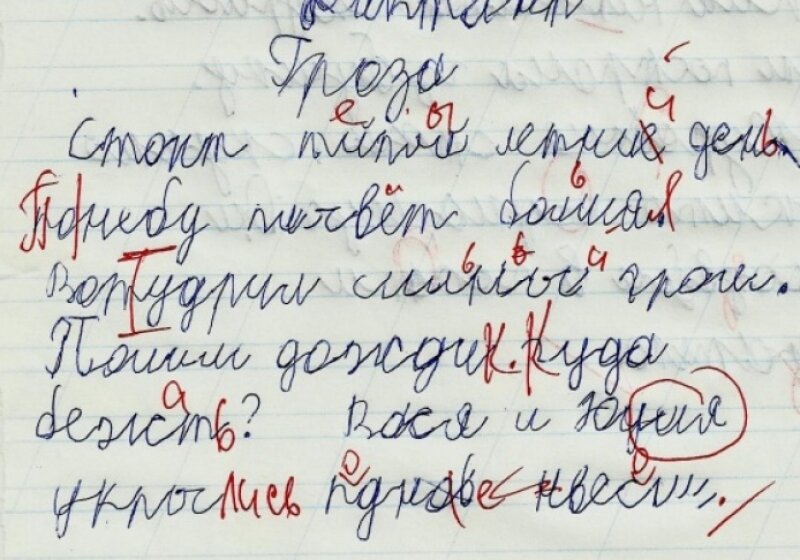 Диктант
Гроза
Стоит теплый летний день
По небу плывёт большая
Вот ударил сильный гром.
Пошли дождик. Куда
бежать? Вася и
укрылись